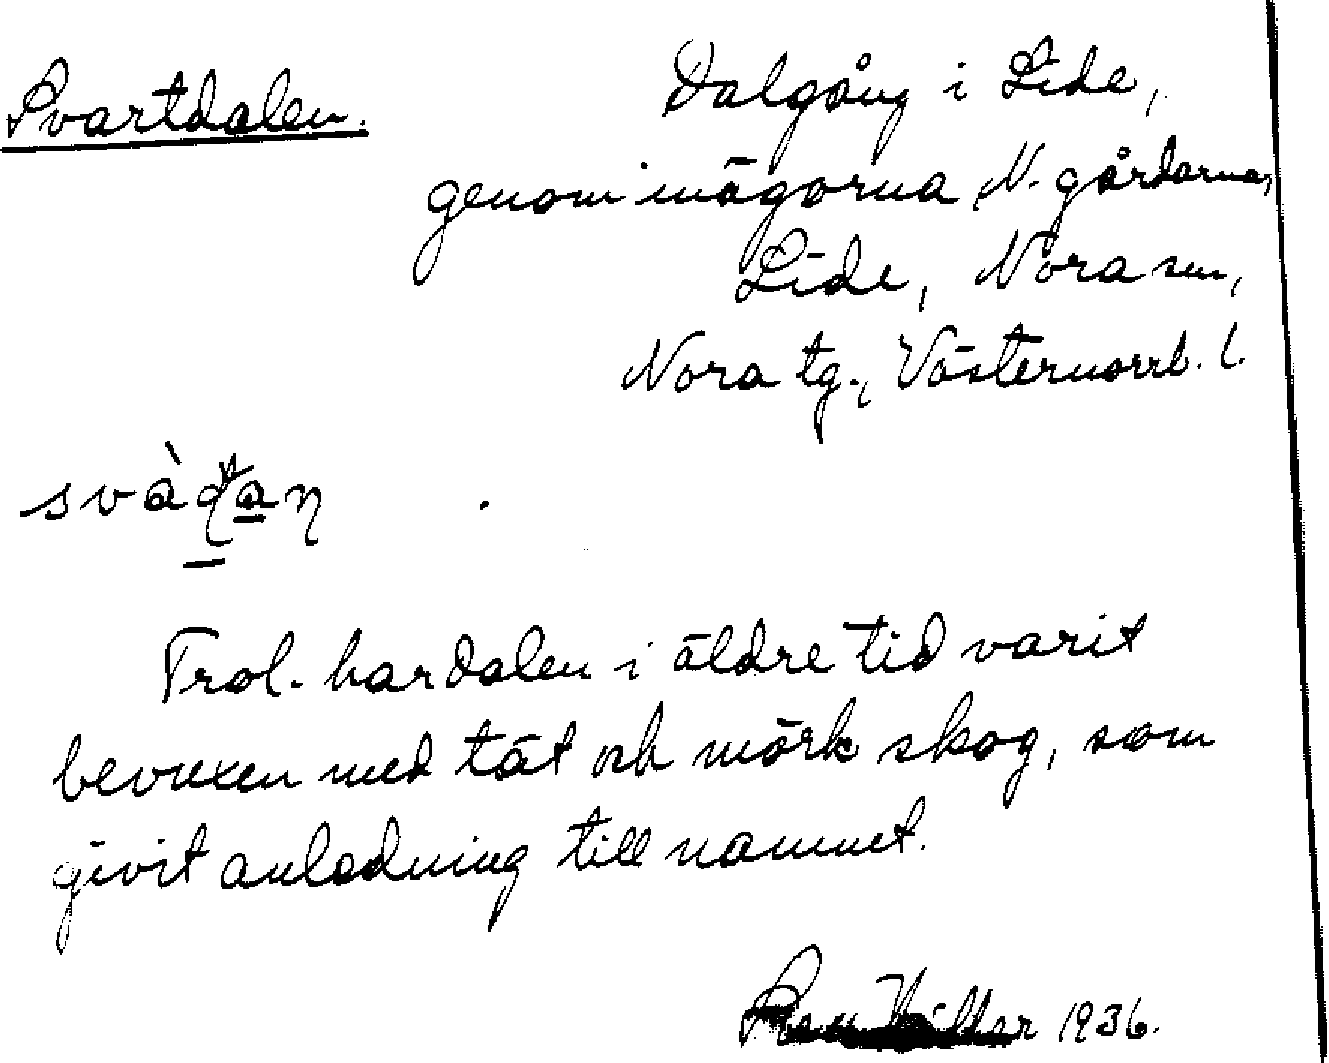 Svartdalen.
Dalgång i Lide,
genom inägorna N. gårdarna,
Lide, Nora sn,
Nora tg., Västernorrl. l.
Trol. har dalen i äldre tid varit
bevuxen med tät och mörk skog, som
givit anledning till namnet.
1936.